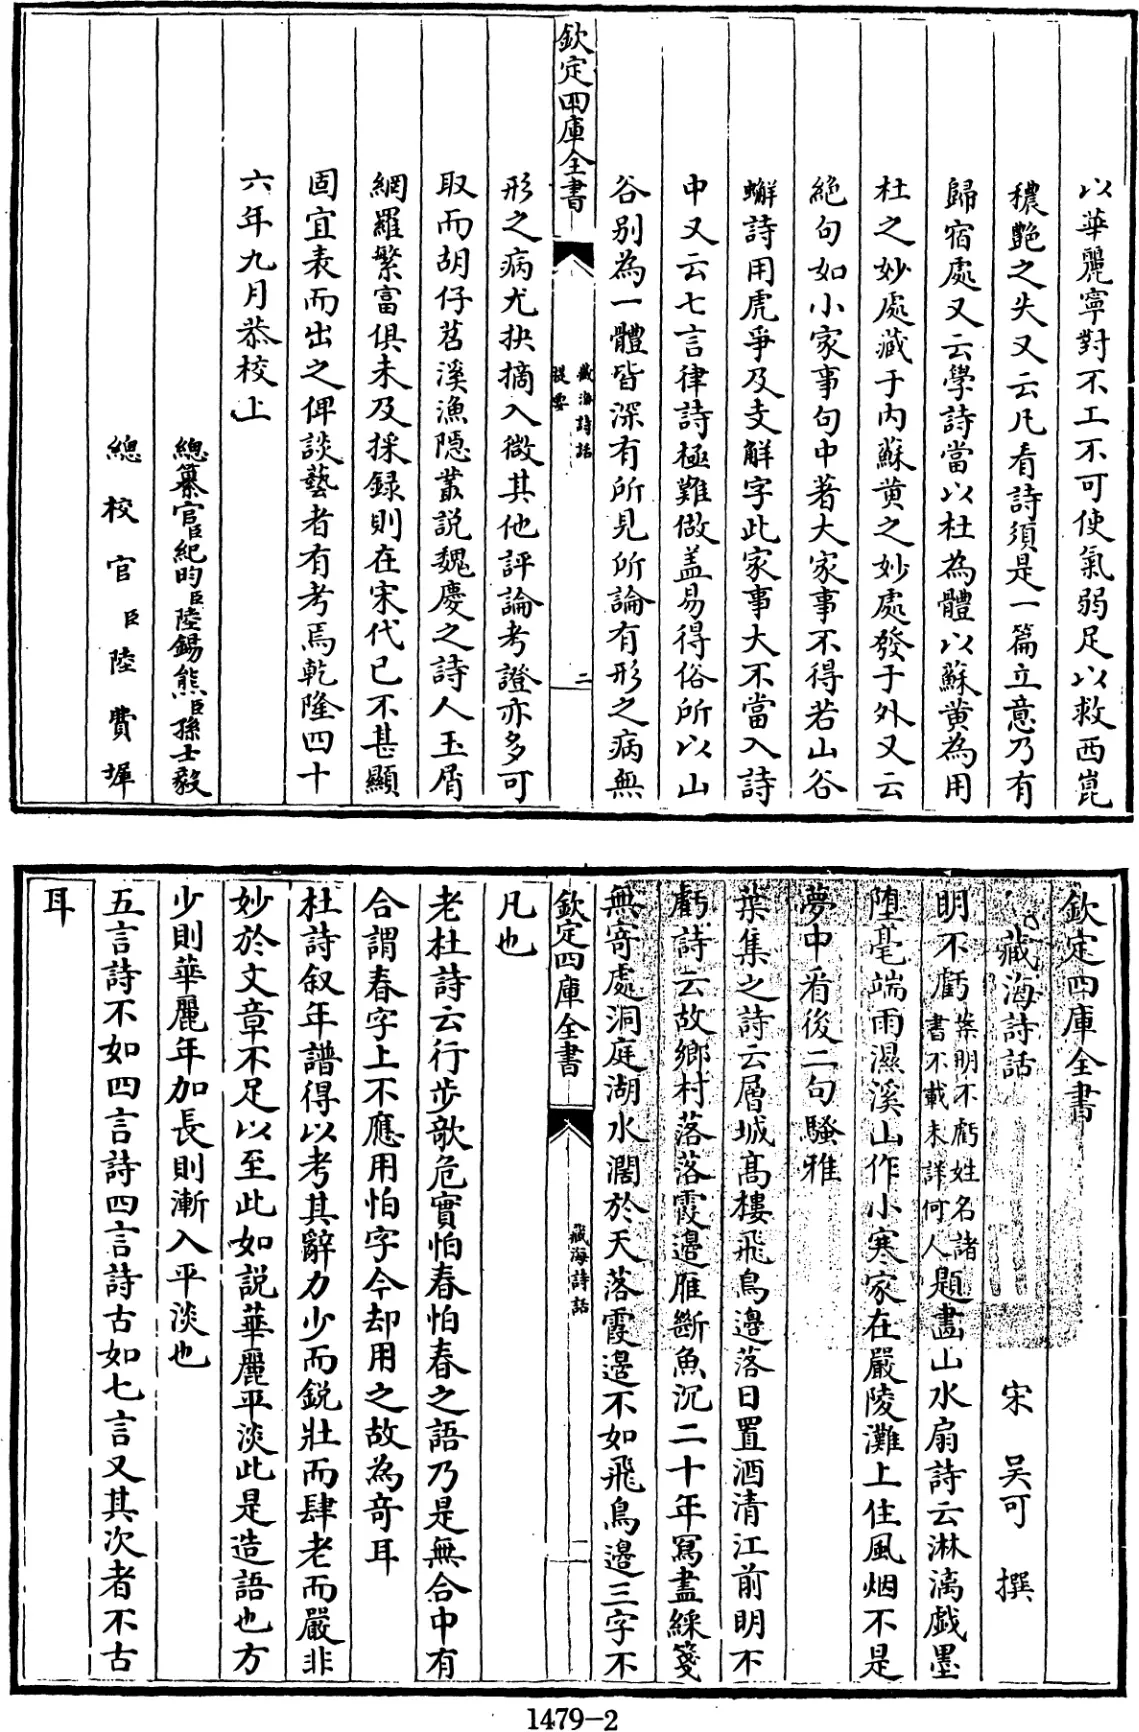 以華麗寧對不工不可使氣弱足以救西崑
穠艷之失又云凡看詩須是一篇立意乃有
歸宿處又云學詩當以杜為體以蘇黄為用
杜之妙處藏于内蘇黄之妙處發于外又云
絶句如小家事句中著大家事不得若山谷
蠏詩用虎爭及支解字此家事大不當入詩
中又云七言律詩極難做盖易得俗所以山
谷别為一體皆深有所見所論有形之病無
欽定四庫全書
藏海詩話
提要
二
形之病尤抉摘入微其他評論考證亦多可
取而胡仔苕溪漁隱叢説魏慶之詩人玉屑
網羅繁富俱未及採録則在宋代已不甚顯
固宜表而出之俾談藝者有考焉乾隆四十
六年九月恭校上
總纂官臣紀昀臣陸錫熊臣孫士毅
總校官臣陸費墀
欽定四庫全書
藏海詩話
宋 吴可 撰
明不虧案明不虧姓名諸書不載未詳何人題畫山水扇詩云淋漓戯墨
墮毫端雨濕溪山作小寒家在嚴陵灘上住風烟不是
夢中看後二句騷雅
葉集之詩云層城髙樓飛鳥邉落日置酒清江前明不
虧詩云故鄉村落落霞邉雁斷魚沉二十年寫盡綵箋
無寄處洞庭湖水濶於天落霞邉不如飛鳥邉三字不
欽定四庫全書
藏海詩話
一
凡也
老杜詩云行步欹危實怕春怕春之語乃是無合中有
合謂春字上不應用怕字今却用之故為竒耳
杜詩叙年譜得以考其辭力少而鋭壯而肆老而嚴非
妙於文章不足以至此如説華麗平淡此是造語也方
少則華麗年加長則漸入平淡也
五言詩不如四言詩四言詩古如七言又其次者不古
耳
1479-2